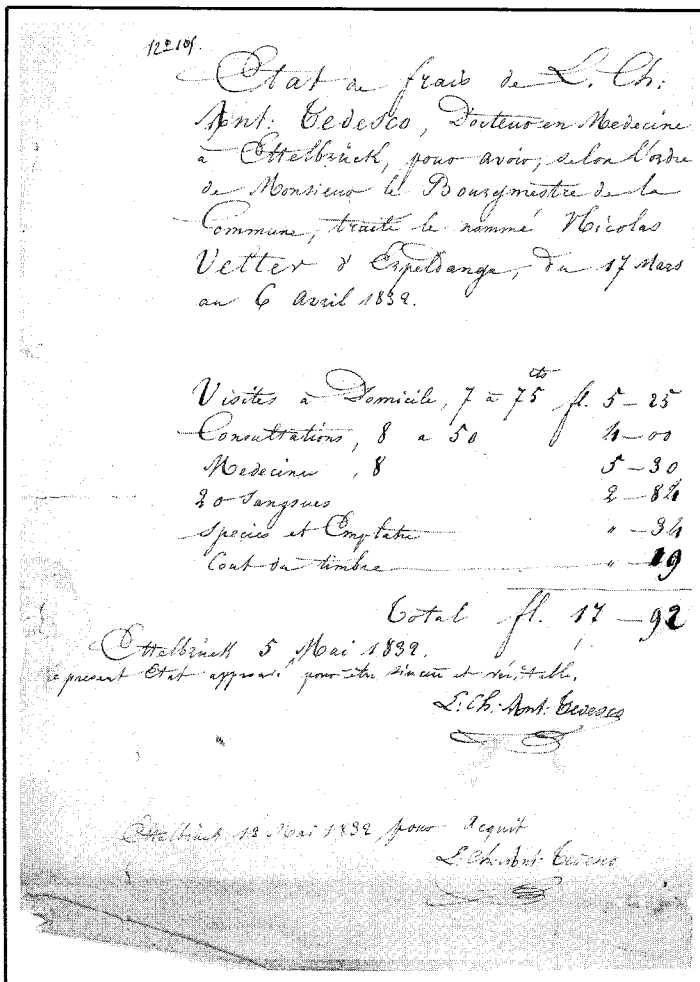 Etat de frais de L. Ch:
Ant: Tedesco, Docteur en Medecine
à Ettelbrück, pour avoir, selon l'ordre
de Monsieur le Bourgmestre de la
Commune, traité le nommé Nicolas
Vetter d'Erpeldange, du 17 Mars
au 6 Avril 1832.
Visites à Domicile, 7 à 75 cts fl. 5 – 25
Consultations, 8 a 50 4 – 00
Medecines, 8 5 – 30
20 Sangsues 2 – 84
Species et Emplatre " – 34
Cout du timbre " – 19
Total fl. 17 – 92
Ettelbrück 5 Mai 1832.
present Etat approuvé pour être sincere et véritable.
L: Ch: Ant: Tedesco
Ettelbrück 13 Mai 1832, pour Acquit
L: Ch: Ant: Tedesco